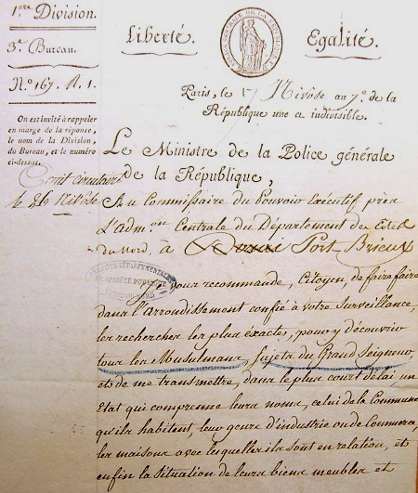 1.ère Division.
3.e Bureau.
N.o 167. R. 1.
On est invité à rappeler
en marge de la réponse,
le nom de la Division,
du Bureau, et le numéro
ci-dessus.
Liberté.
Egalité.
Paris, le 17 Nivôse an 7.e de la
République une et indivisible.
Le Ministre de la Police générale
de la République,
Ecrit circulaire
le 26 Nivôse
Au Commissaire du Pouvoir Exécutif près
l'adm.on Centrale du Département des Côtes
du Nord, à Port Brieux
Je vous recommande, Citoyen, de faire faire
dans l'arrondissement confié à votre Surveillance,
les recherches les plus exactes, pour y découvrir
tous les Musulmans, Sujets du Grand Seigneur,
et de me transmettre, dans le plus court délai un
Etat qui comprenne leurs noms, celui de la Commune
qu'ils habitent, leur genre d'industrie ou de Commerce,
les maisons avec lesquelles ils sont en relation, et
enfin la situation de leurs biens meubles et